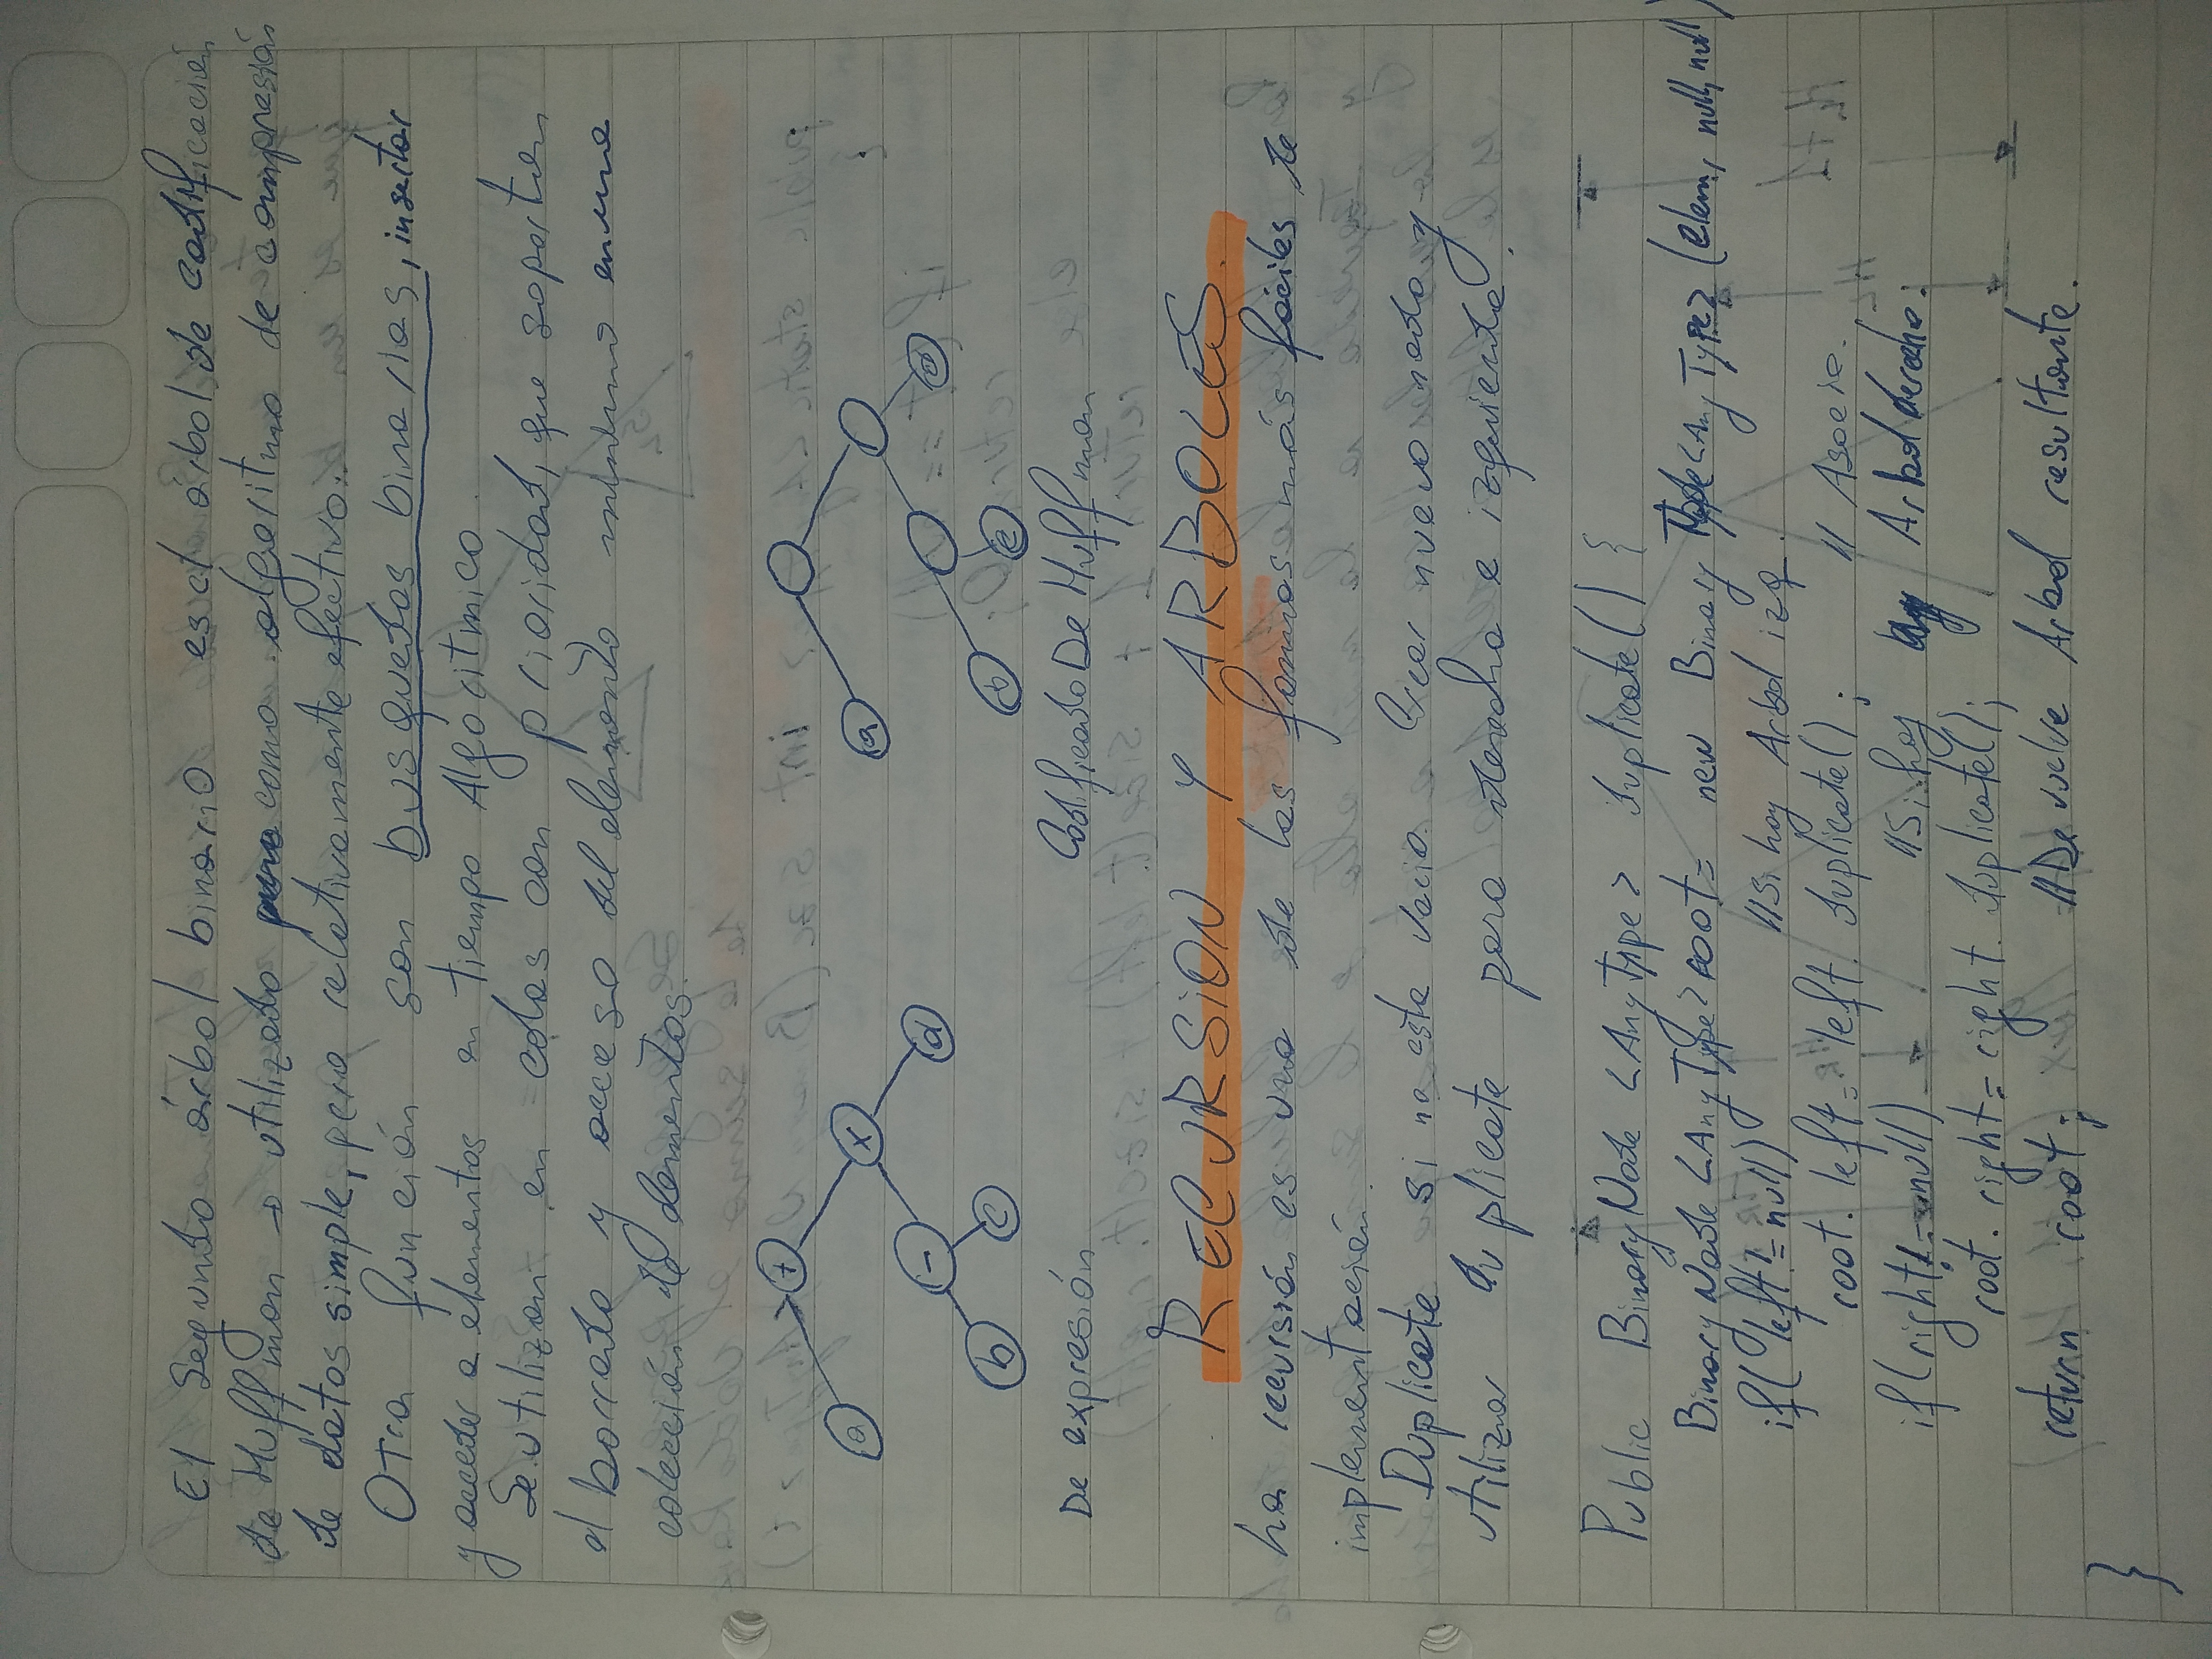 El Segundo árbol binario es el árbol de codificación
de Huffman → utilizado como algoritmo de compresión
de datos simple, pero relativamente efectivo.
Otra función son busquedas binarias, insertar
y acceder a elementos en tiempo Algoritmico.
Se utilizan en colas con prioridad, que soportan
el borrado y acceso del elemento minimo en una
colección de elementos.
+
a
x
-
d
b
c
a
d
b
c
De expresión
Codificado De Huffman
RECURSION Y ARBOLES.
La recursión es una de las formas más fáciles de
implementación.
Duplicate si no esta vacio. Crear nuevo nodo y
utilizar duplicate para derecha e izquierda.
Public BinaryNode <AnyType> duplicate() {
BinaryNode <AnyType> root = new Binary Node <AnyType> (elem, null, null)
if( left != null) //Si hay Arbol izq.
root. left = left. duplicate(); // Asocia.
if(right != null) //Si hay Arbol derecho.
root. right = right. duplicate();
return root; //Devuelve Arbol resultante.
}